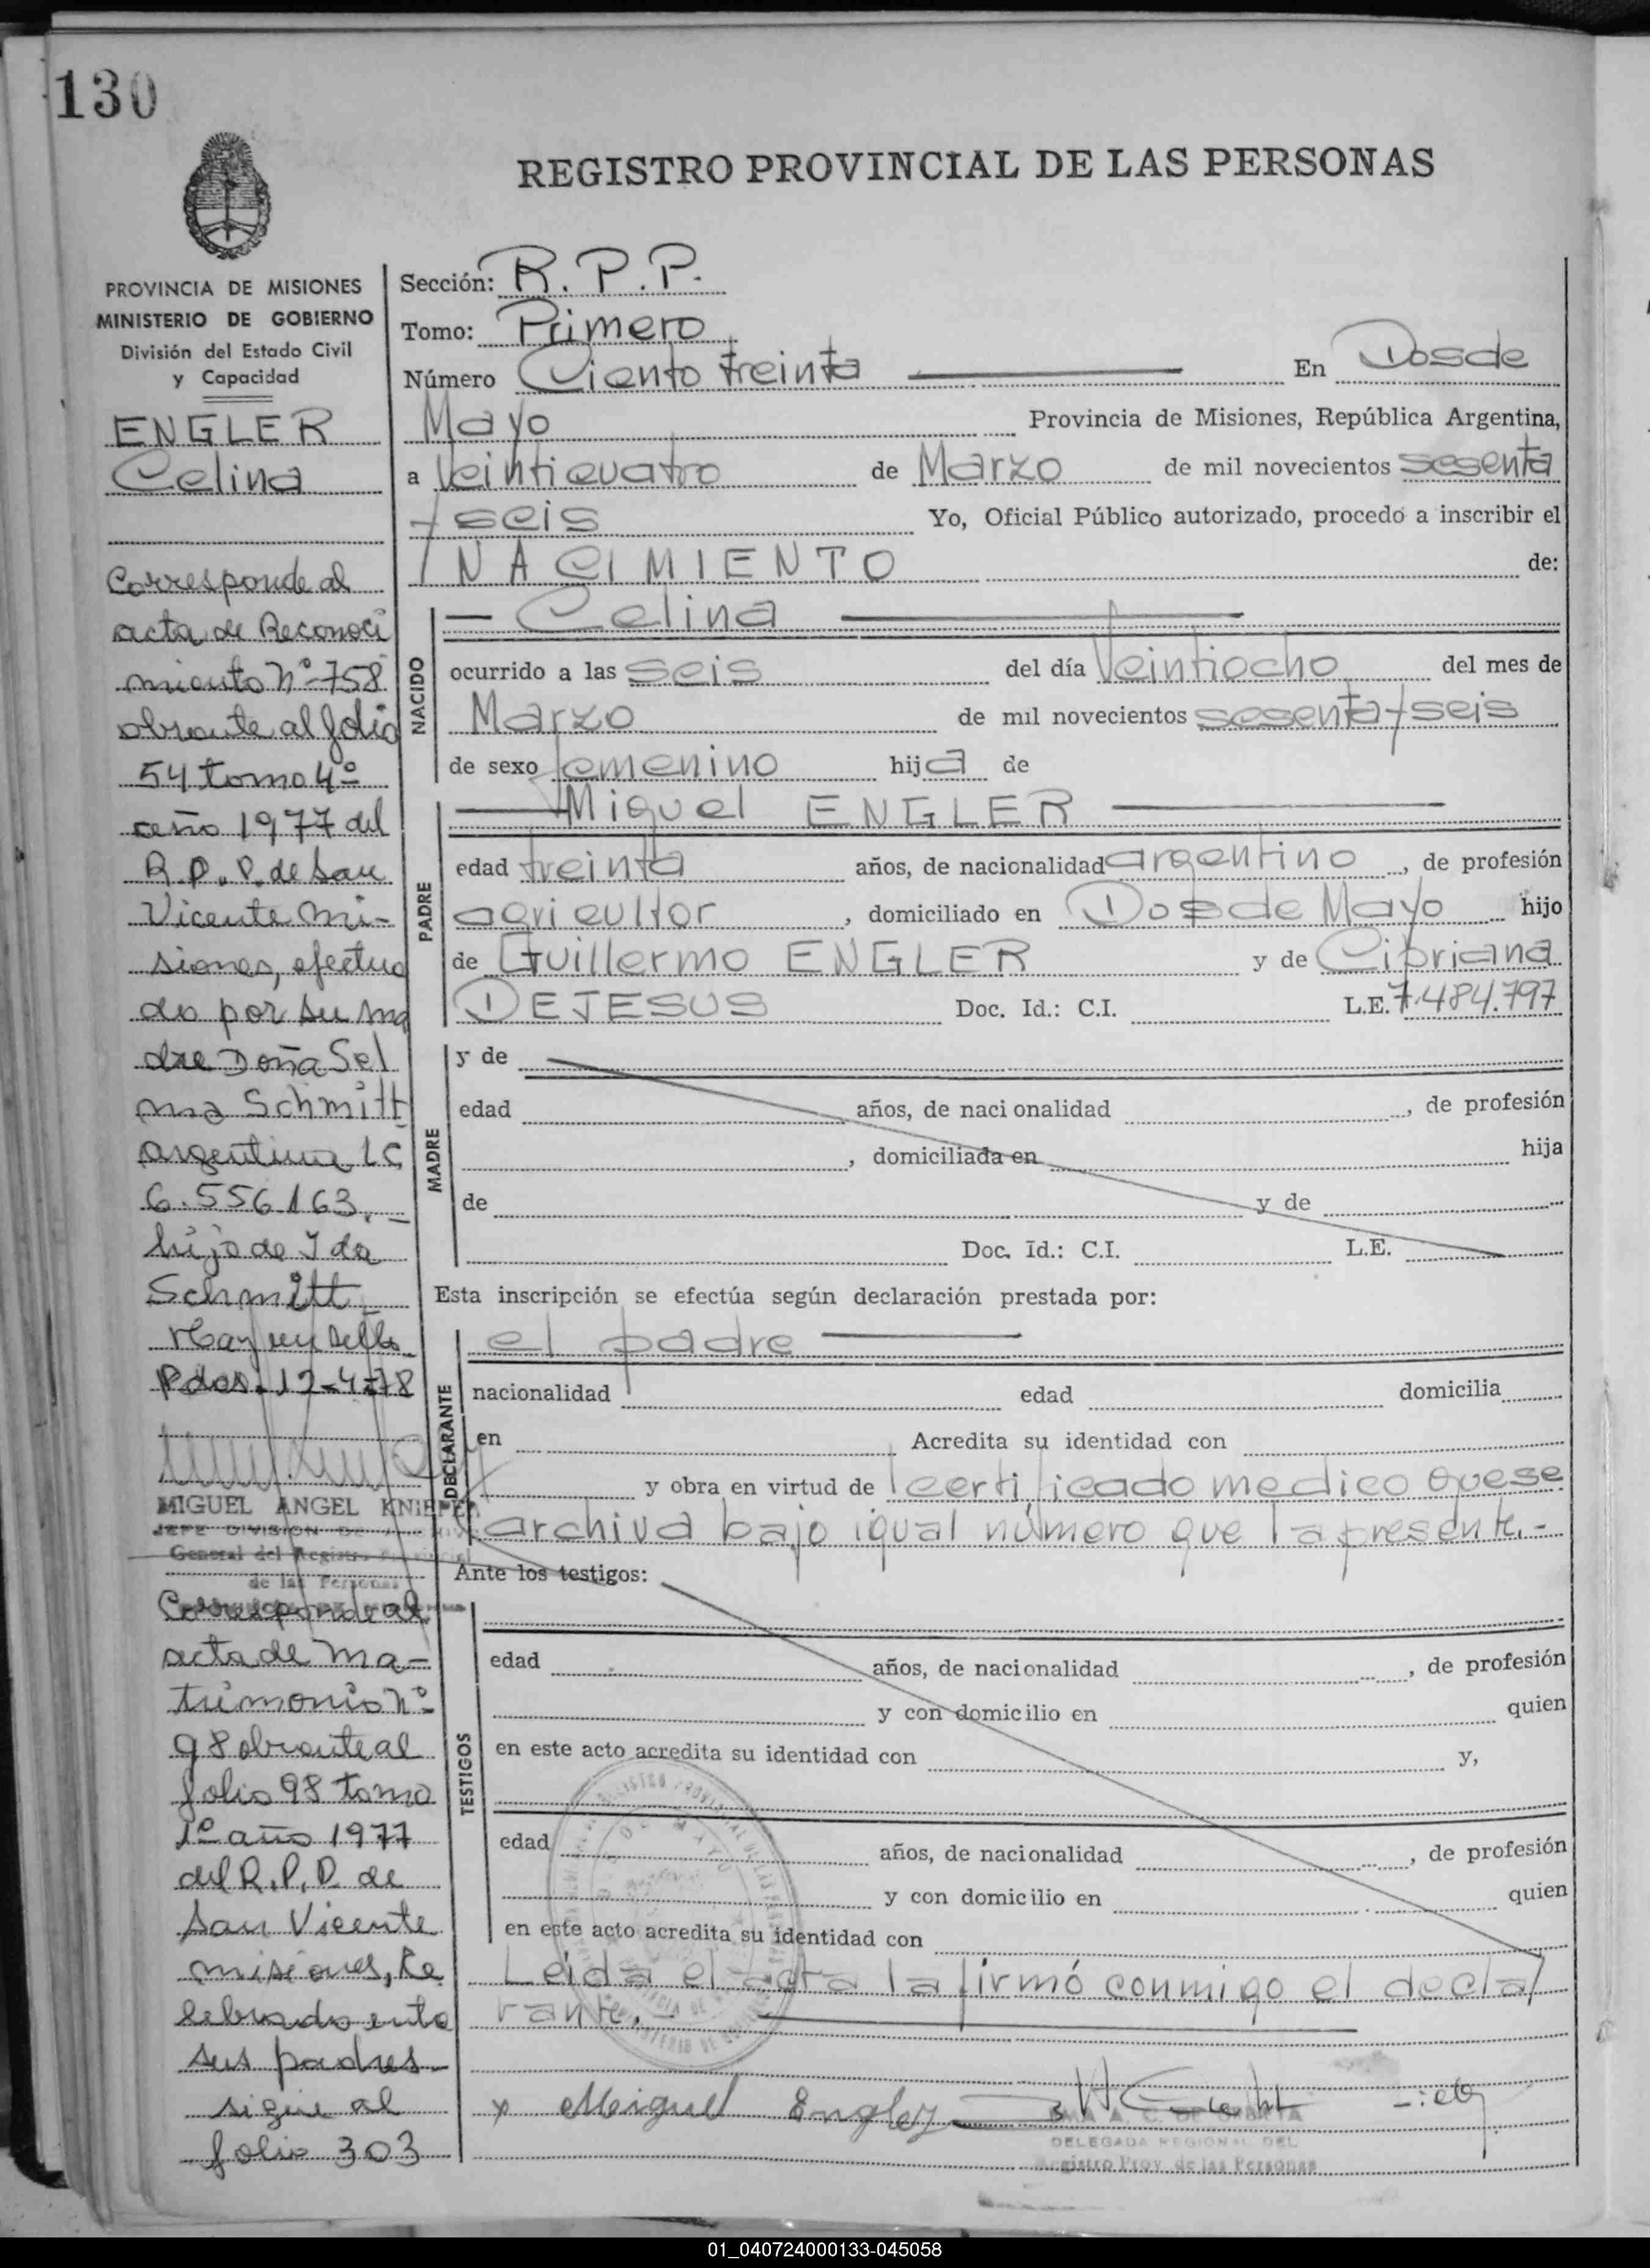 130
REGISTRO PROVINCIAL DE LAS PERSONAS
PROVINCIA DE MISIONES
MINISTERIO DE GOBIERNO
División del Estado Civil
y Capacidad
ENGLER
Celina
Corresponde al
acta de Reconoci
miento Nº 758
obrante al folio
54 tomo 4º
año 1977 del
R.P.P. de San
Vicente Mi-
siones, efectua
do por su ma
dre Doña Sel
ma Schmitt
argentina LC
6.556.163.-
hija de Ida
Schmitt
Hay un sello
Pdas. 12-4-78
MIGUEL ANGEL KNIEPER
JEFE DIVISION DE ARCHIVO
General del Registro Provincial
de las Personas
Corresponde al
acta de Ma-
trimonio Nº
98 obrante al
folio 98 tomo
1º año 1977
del R.P.P. de
San Vicente
Misiones, Ce
lebrado entre
sus padres-
sigue al
folio 303
Sección: R.P.P.
Tomo: Primero
Número Ciento treinta En Dos de
Mayo Provincia de Misiones, República Argentina,
a Veinticuatro de Marzo de mil novecientos sesenta
y seis Yo, Oficial Público autorizado, procedo a inscribir el
NACIMIENTO de:
NACIDO
Celina
ocurrido a las seis del día Veintiocho del mes de
Marzo de mil novecientos sesenta y seis
de sexo femenino hija de
PADRE
Miguel ENGLER
edad treinta años, de nacionalidad argentino, de profesión
agricultor, domiciliado en Dos de Mayo hijo
de Guillermo ENGLER y de Cibriana
DEJESUS Doc. Id.: C.I. L.E. 7.484.797
MADRE
y de
edad años, de nacionalidad , de profesión
, domiciliada en hija
de y de
Doc. Id.: C.I. L.E.
Esta inscripción se efectúa según declaración prestada por:
DECLARANTE
el padre
nacionalidad edad domicilia
en Acredita su identidad con
y obra en virtud de certificado medico que se
archiva bajo igual número que la presente.-
Ante los testigos:
TESTIGOS
edad años, de nacionalidad , de profesión
y con domicilio en quien
en este acto acredita su identidad con y,
edad años, de nacionalidad , de profesión
y con domicilio en quien
en este acto acredita su identidad con
Leida el acta la firmó conmigo el decla
rante.-
x Miguel Engler
DELEGADA REGIONAL DEL
Registro Prov. de las Personas
01_040724000133-045058